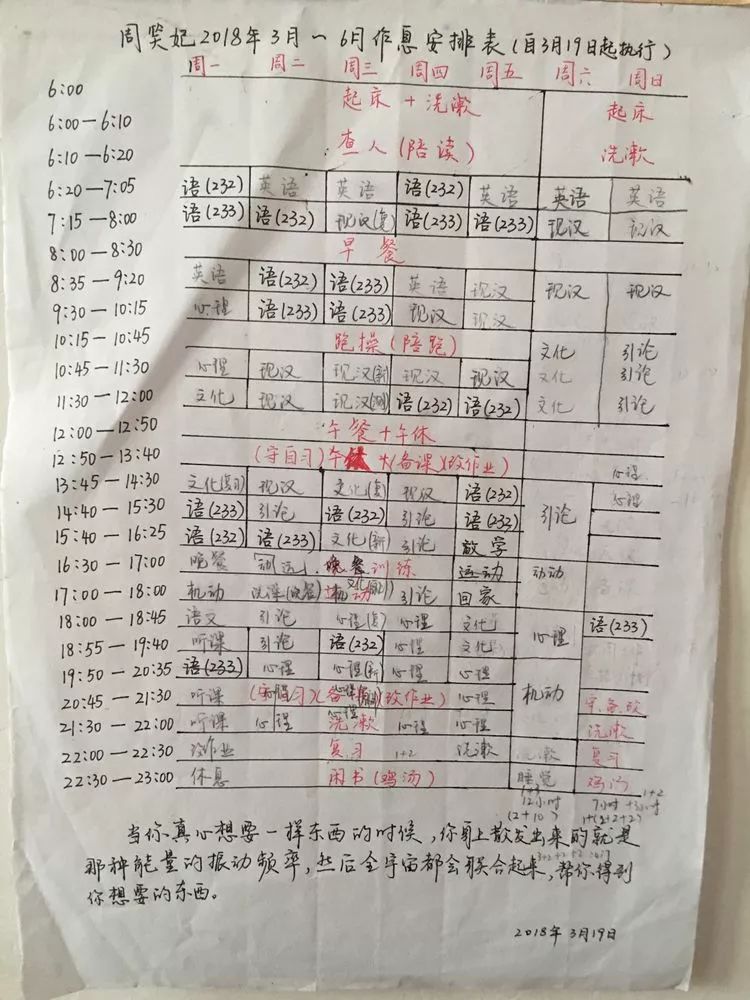 周笑妃2018年3月～6月作息安排表(自3月19日起执行)
周一 周二 周三 周四 周五 周六 周日
6:00 起床+洗漱 起床
6:00—6:10
6:10—6:20 查人(陪读) 洗漱
6:20—7:05 语(232) 英语 英语 语(232) 英语 英语 英语
7:15—8:00 语(233) 语(232) 现汉(复) 语(233) 语(233) 现汉 现汉
8:00—8:30 早餐
8:35—9:20 英语 语(232) 语(233) 英语 现汉 现汉 现汉
9:30—10:15 心理 语(233) 语(233) 现汉 现汉
10:15—10:45 跑操(陪跑) 文化 引论
10:45—11:30 心理 现汉 现汉(新) 现汉 现汉 文化 引论
11:30—12:00 文化 现汉 现汉 语(232) 语(232) 文化 引论
12:00—12:50 午餐+午休
12:50—13:40 (守自习)午休 (备课)(改作业) 心理
13:45—14:30 文化(复习) 现汉 文化(复) 现汉 语(232) 引论 心理
14:40—15:30 语(233) 引论 语(232) 引论 语(232)
15:40—16:25 语(232) 语(233) 文化(新) 引论 放学
16:30—17:00 晚餐 「动运」 晚餐训练 运动 动动
17:00—18:00 机动 洗澡(晚餐) 机动 引论 回家
18:00—18:45 语文 引论 心理(复) 心理 文化 心理 语(233)
18:55—19:40 听课 引论 语(232) 心理 文化
19:50—20:35 语(233) 心理 心理(新) 心理 心理 机动
20:45—21:30 听课 (守自习)(备课)(改作业) 心理 守.备.改
21:30—22:00 听课 心理 洗漱 心理 心理 洗漱
22:00—22:30 改作业 复习 1+2 洗漱 洗漱 复习
22:30—23:00 休息 闲书(鸡汤) 睡觉 鸡汤
1+3 1+2
12小时 7小时+3小时
(2+10) 1+(2+2+2)
当你真心想要一样东西的时候，你身上散发出来的就是
那种能量的振动频率，然后全宇宙都会联合起来，帮你得到
你想要的东西。
2018年3月19日